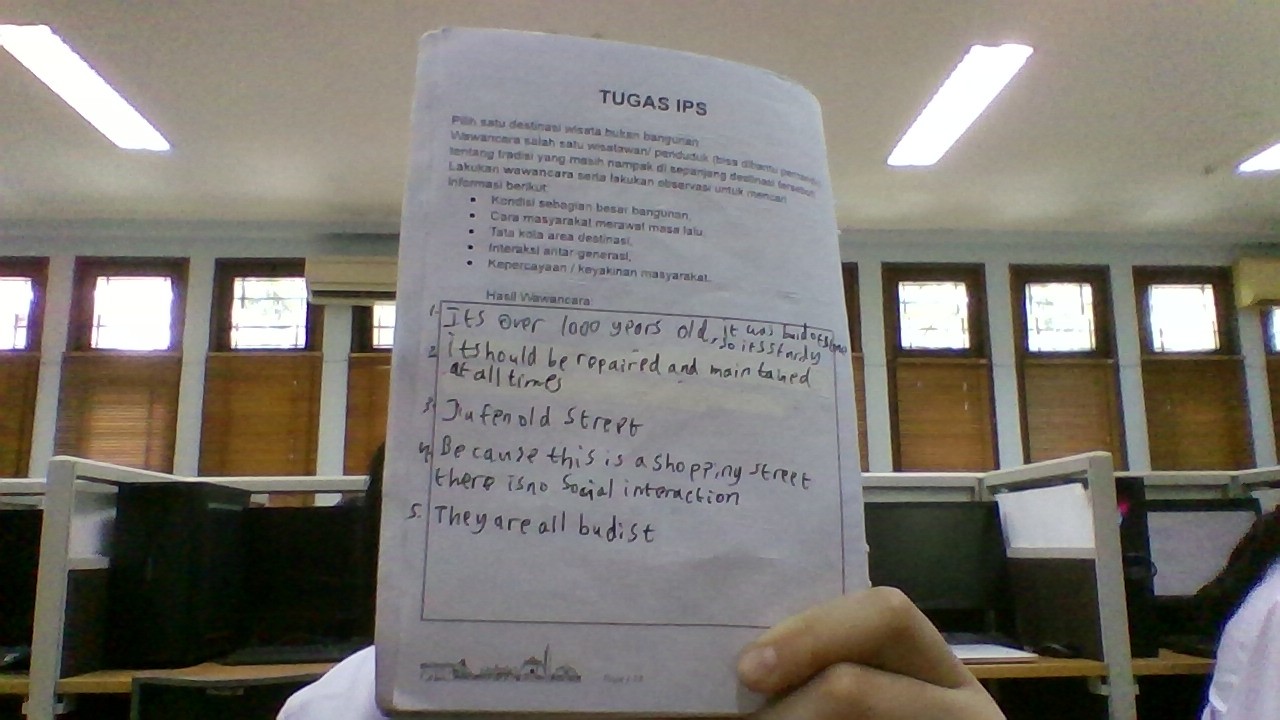 TUGAS IPS
Pilih satu destinasi wisata bukan bangunan
Wawancara salah satu wisatawan/ penduduk (bisa dibantu
tentang tradisi yang masih nampak di sepanjang destinasi tersebut
Lakukan wawancara serta lakukan observasi untuk mencari
informasi berikut:
• Kondisi sebagian besar bangunan,
• Cara masyarakat merawat masa lalu
• Tata kota area destinasi,
• Interaksi antar generasi,
• Kepercayaan / keyakinan masyarakat.
Hasil Wawancara
1. Its over 1000 years old, it was
so its sturdy
2. it should be repaired and maintained
at all times
3. Jiufen old street
4. Because this is a shopping street
there is no social interaction
5. They are all budist
Page